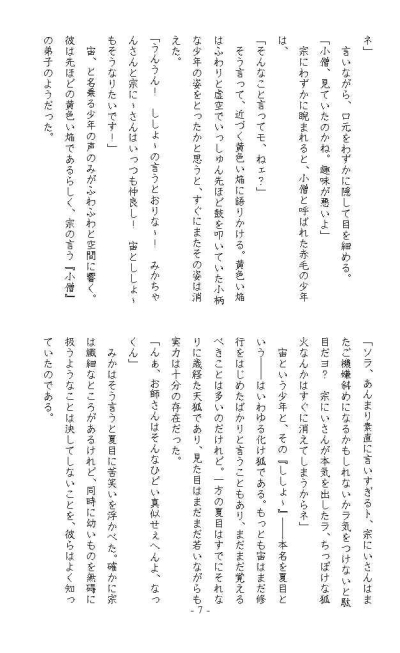 ネ」
　言いながら、口元をわずかに隠して目を細める。
「小僧、見ていたのかね。趣味が悪いよ」
　宗にわずかに睨まれると、小僧と呼ばれた赤毛の少年
は、
「そんなこと言ってモ、ねェ？」
　そう言って、近づく黄色い焔に語りかける。黄色い焔
はふわりと虚空でいっしゅん先ほど鼓を叩いていた小柄
な少年の姿をとったかと思うと、すぐにまたその姿は消
えた。
「うんうん！　ししょ～の言うとおりな～！　みかちゃ
んさんと宗に～さんはいっつも仲良し！　宙とししょ～
もそうなりたいです～！」
　宙、と名乗る少年の声のみがふわふわと空間に響く。
彼は先ほどの黄色い焔であるらしく、宗の言う『小僧』
の弟子のようだった。
「ソラ、あんまり素直に言いすぎるト、宗にいさんはま
たご機嫌斜めになるかもしれないかラ気をつけないと駄
目だヨ？　宗にいさんが本気を出したラ、ちっぽけな狐
火なんかはすぐに消えてしまうからネ」
　宙という少年と、その『ししょ～』――本名を夏目と
いう――はいわゆる化け狐である。もっとも宙はまだ修
行をはじめたばかりと言うこともあり、まだまだ覚える
べきことは多いのだけれど。一方の夏目はすでにそれな
りに歳経た天狐であり、見た目はまだまだ若いながらも
実力は十分の存在だった。
「んぁ、お師さんはそんなひどい真似せぇへんよ、なっ
くん」
　みかはそう言うと夏目に苦笑いを浮かべた。確かに宗
は繊細なところがあるけれど、同時に幼いものを無碍に
扱うようなことは決してしないことを、彼らはよく知っ
ていたのである。
- 7 -